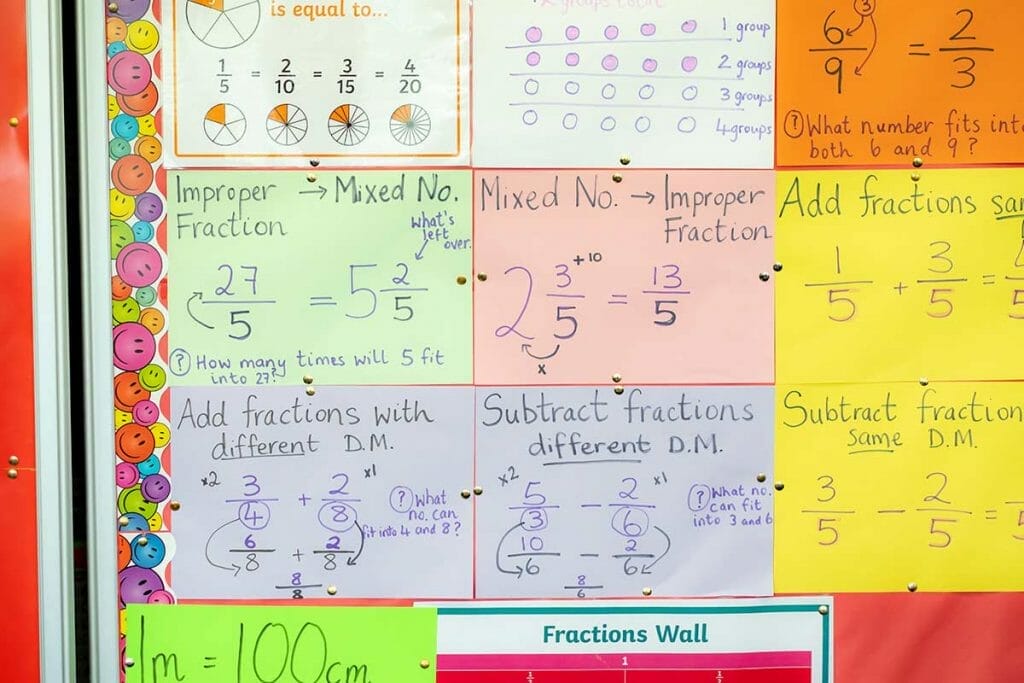 is equal to...
1/5 = 2/10 = 3/15 = 4/20
2 groups total
1 group
2 groups
3 groups
4 groups
3
6/9 = 2/3
? What number fits int
both 6 and 9?
Improper → Mixed No.
Fraction
what's
left
over.
27/5 = 5 2/5
? How many times will 5 fit
into 27?
Mixed No. → Improper
Fraction
2 3/5 +10 = 13/5
x
Add fractions sa
1/5 + 3/5 =
Add fractions with
different D.M.
x2 3/4 + 2/8 x1
? What
no. can
fit into 4 and 8?
6/8 + 2/8
8/8
Subtract fractions
different D.M.
x2 5/3 − 2/6 x1
? What no.
can fit
into 3 and 6
10/6 − 2/6
8/6
Subtract fraction
same D.M.
3/5 − 2/5 =
1m = 100cm.
Fractions Wall
1